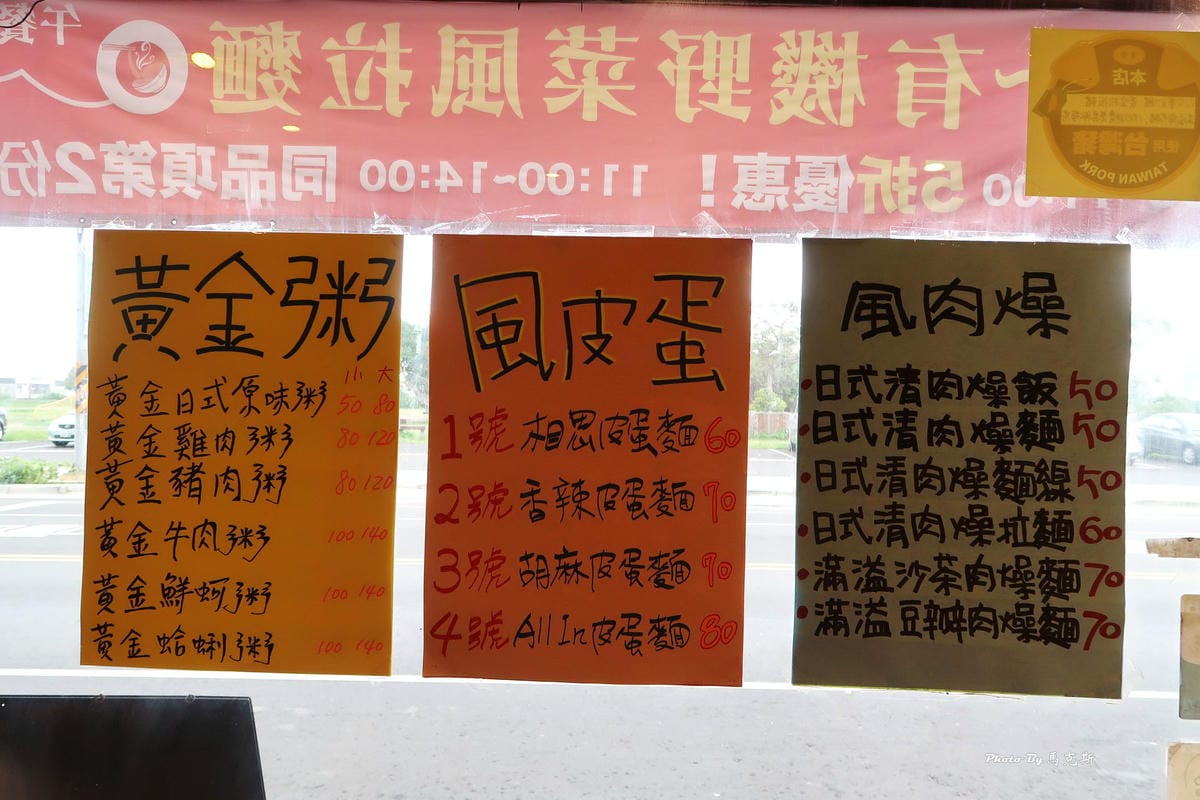 午餐
一有機野菜風拉麵
11:00 5折優惠！ 11:00~14:00 同品項第2份
本店
使用台灣豬
TAIWAN PORK
黃金粥
小 大
黃金日式原味粥 50 80
黃金雞肉粥 80 120
黃金豬肉粥 80 120
黃金牛肉粥 100 140
黃金鮮蚵粥 100 140
黃金蛤蜊粥 100 140
風皮蛋
1號 相思皮蛋麵 60
2號 香辣皮蛋麵 70
3號 胡麻皮蛋麵 70
4號 All In皮蛋麵 80
風肉燥
•日式清肉燥飯 50
•日式清肉燥麵 50
•日式清肉燥麵線 50
•日式清肉燥拉麵 60
•滿溢沙茶肉燥麵 70
•滿溢豆瓣肉燥麵 70
Photo By 馬克斯